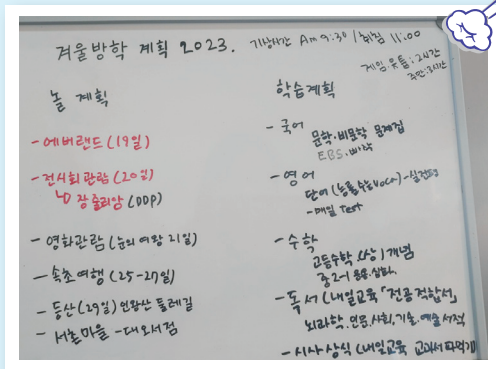 겨울방학 계획 2023. 기상시간 Am 9:30 / 취침 11:00
게임·유튭: 2시간
주말: 3시간
놀 계획
- 에버랜드 (19일)
- 전시회 관람 (20일)
장 줄리앙 (DDP)
- 영화관람 (눈의 여왕 21일)
- 속초여행 (25-27일)
- 등산 (29일) 인왕산 둘레길
- 서촌마을 - 대오서점
학습계획
- 국어
문학·비문학 문제집
EBS.
- 영어
단어 (능률 수능 Voca) - 실전편
- 매일 Test
- 수학
고등수학 (상) 개념
중 2-1 응용·심화.
- 독서 (내일교육 「전공적합서」
뇌과학, 인문, 사회, 기술, 예술 서적
- 시사상식 (내일교육 교과서 파먹기